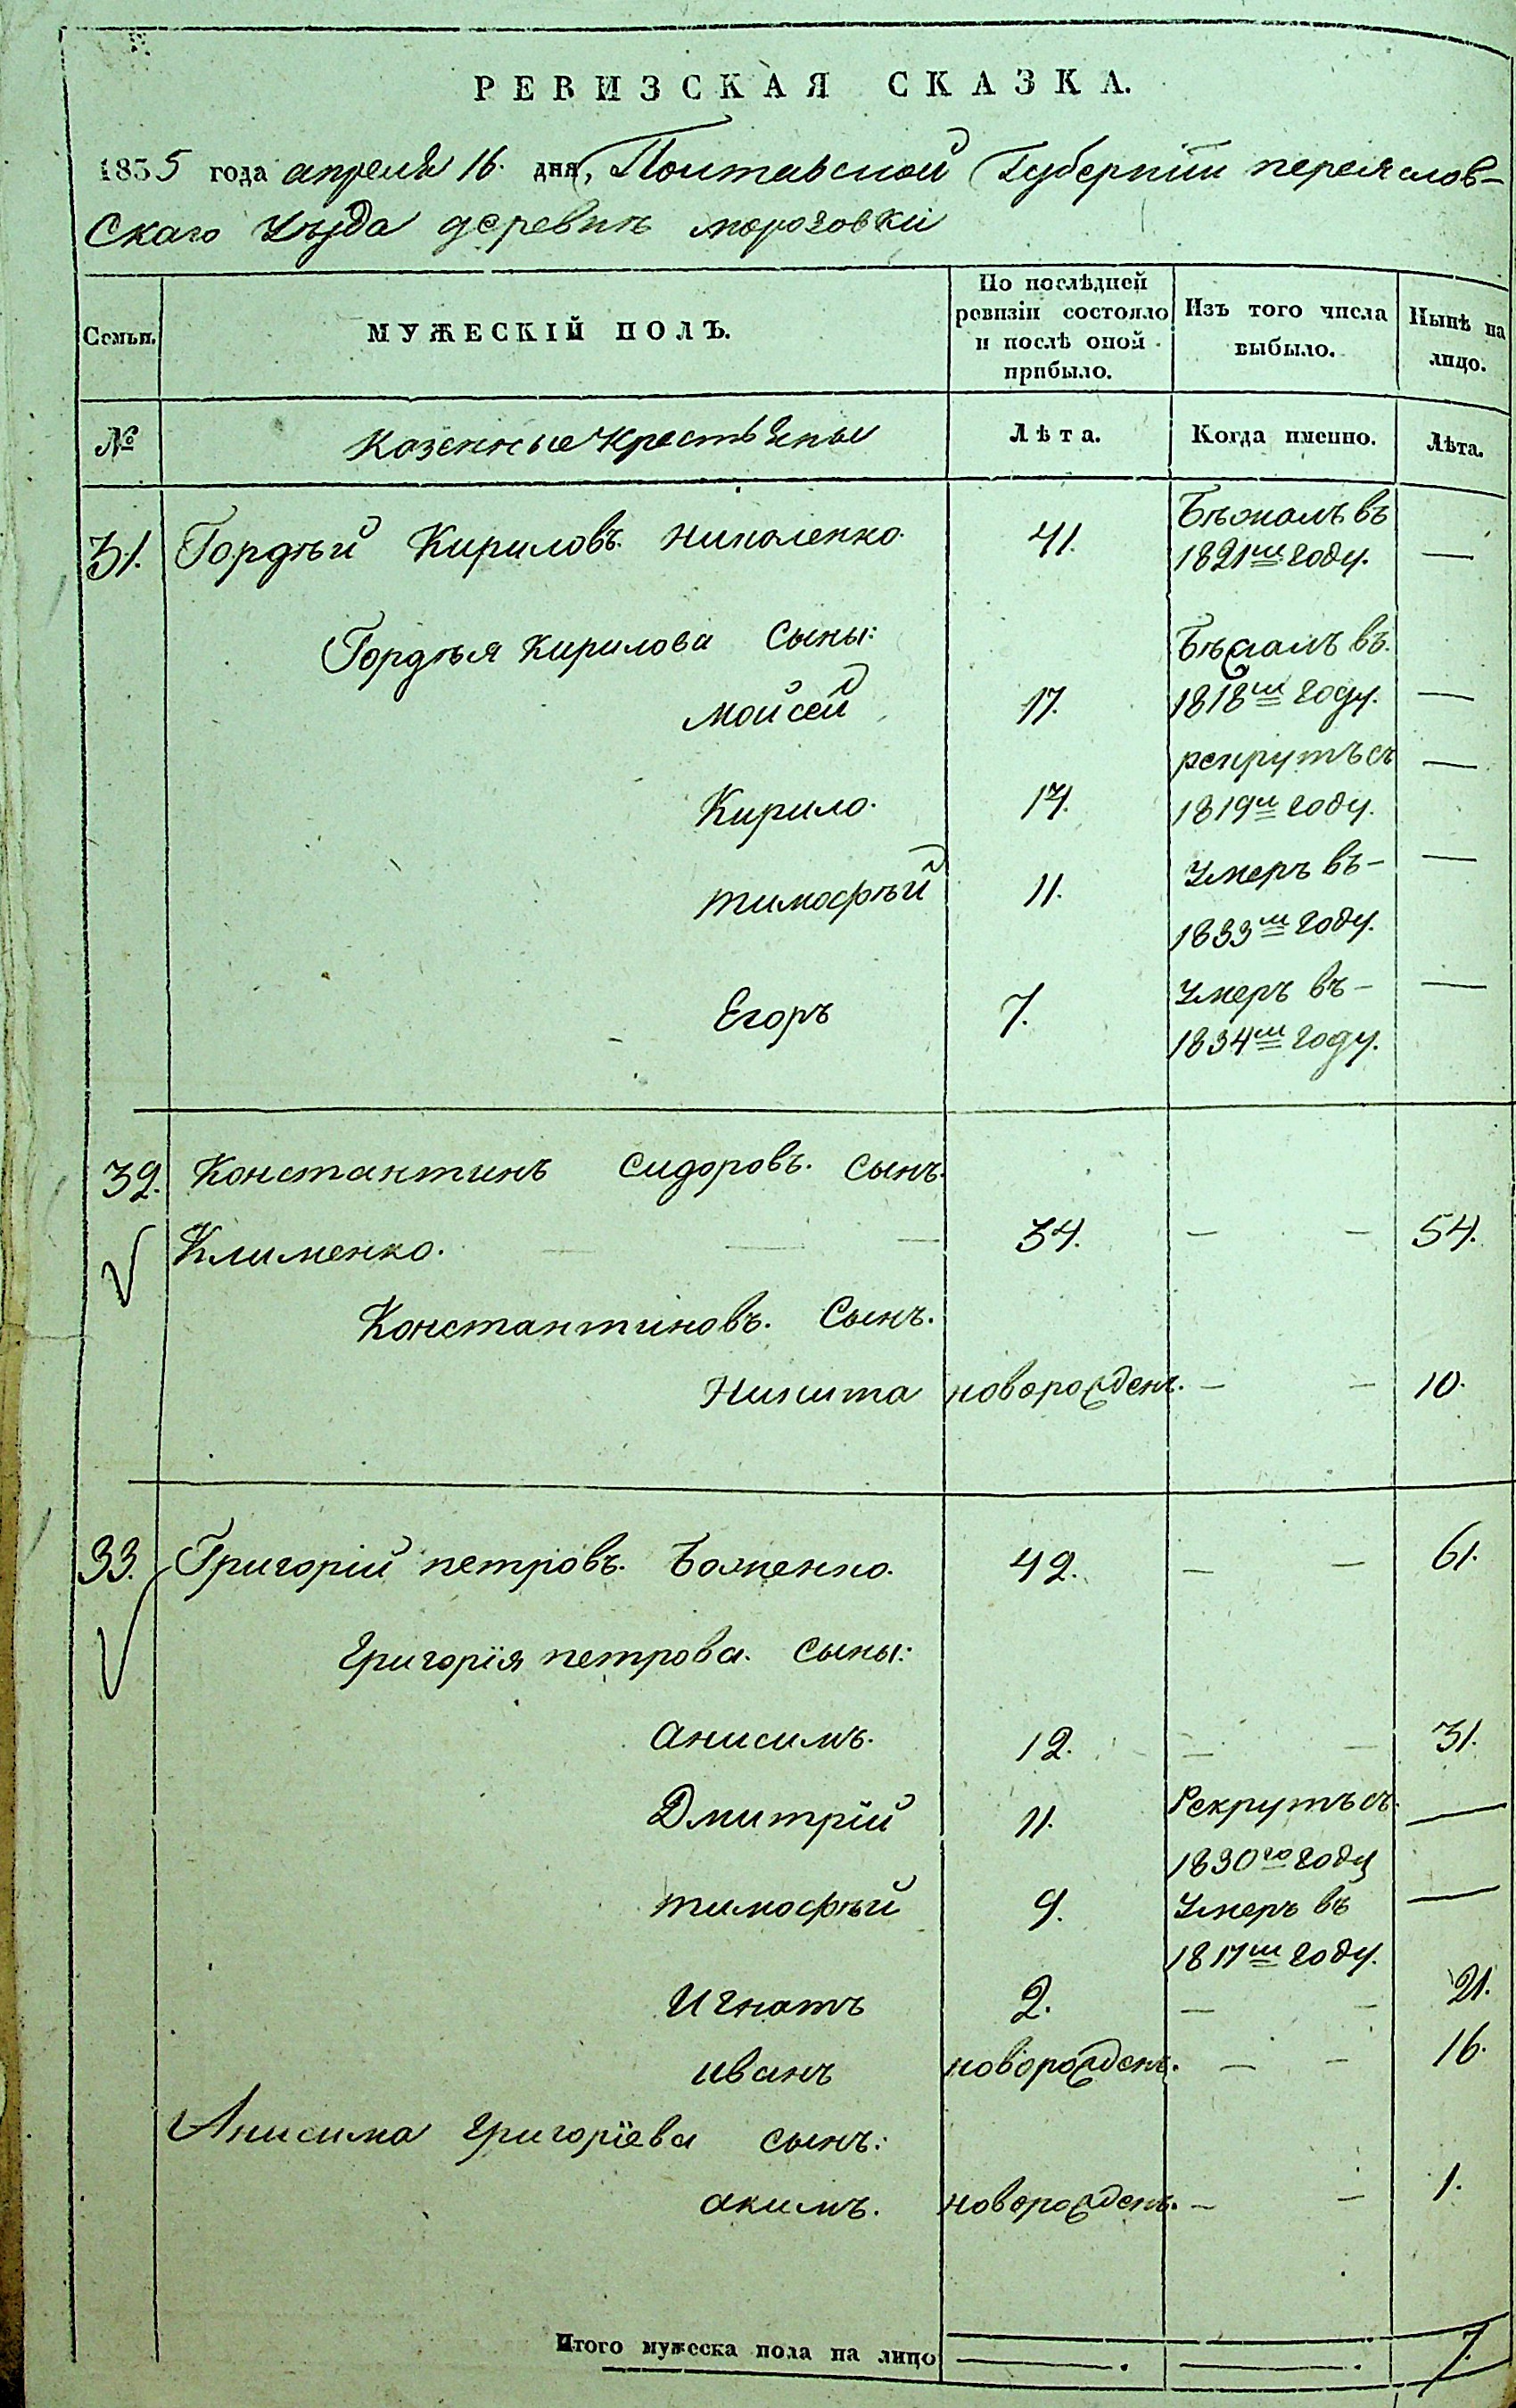 РЕВИЗСКАЯ СКАЗКА.
1835 года апреля 16. дня, Полтавской Губернiи переяслов-
Скаго Уѣзда деревнѣ
Семьи.
МУЖЕСКІЙ ПОЛЪ.
По послѣдней ревизіи состояло и послѣ оной прибыло.
Изъ того числа выбыло.
Нынѣ на лицо.
№
Казенные Крестьяны
Лѣта.
Когда именно.
Лѣта.
31. Гордѣй Кириловъ. Николенко. 41. Бѣжалъ въ 1821м году. —
Гордѣя Кирилова Сыны:
Мойсей 17. Бѣжалъ въ. 1818м году. —
Кирило. 14. рекрутъ съ 1819м году. —
тимофѣй 11. Умеръ въ- 1833м году. —
Егоръ 7. Умеръ въ- 1834м году. —
32. Константинъ Сидоровъ. Сынъ.
Клименко. — — — 34. — — 54.
Константиновъ. Сынъ.
Никита новорожденъ. — — 10.
33. Григорій петровъ. Боженко. 42. — — 61.
Григорїя петрова. Сыны:
Анисимъ. 12. — — 31.
Дмитрїй 11. Рекрутъ съ. 1830го году —
тимофѣй 9. Умеръ въ 1817м году. —
Игнатъ 2. — — 21.
иванъ новорожденъ. — — 16.
Анисима Григорїева сынъ:
акимъ. новорожденъ. — — 1.
Итого мужеска пола на лицо — . — . 7.